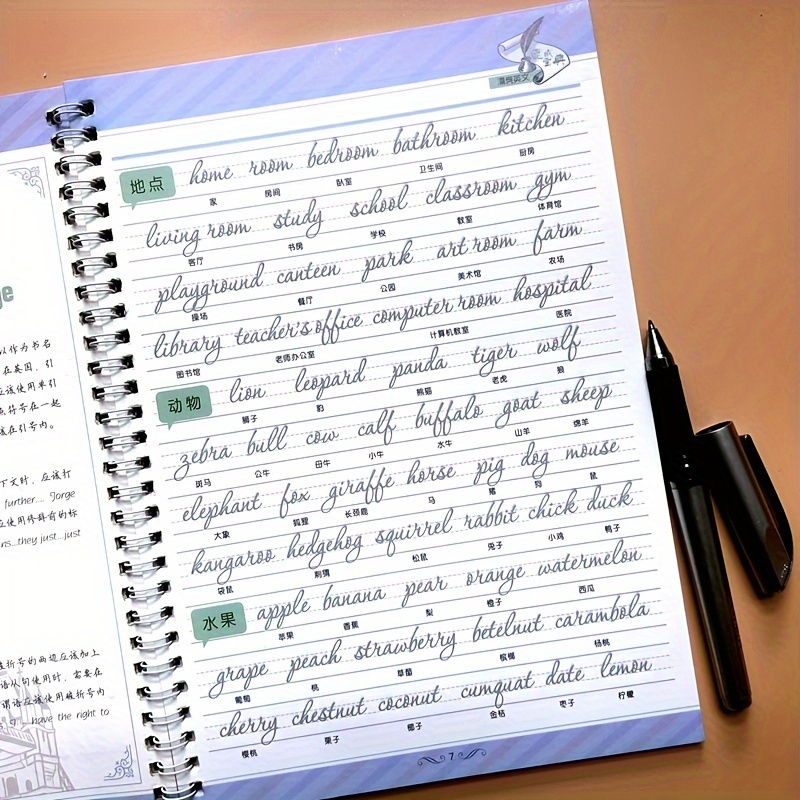 漂亮英文
地点
home room bedroom bathroom kitchen
家 房间 卧室 卫生间 厨房
living room study school classroom gym
客厅 书房 学校 教室 体育馆
playground canteen park art room farm
操场 餐厅 公园 美术馆 农场
library teacher's office computer room hospital
图书馆 老师办公室 计算机教室 医院
动物
lion leopard panda tiger wolf
狮子 豹 熊猫 老虎 狼
zebra bull cow calf buffalo goat sheep
斑马 公牛 母牛 小牛 水牛 山羊 绵羊
elephant fox giraffe horse pig dog mouse
大象 狐狸 长颈鹿 马 猪 狗 鼠
kangaroo hedgehog squirrel rabbit chick duck
袋鼠 刺猬 松鼠 兔子 小鸡 鸭子
水果
apple banana pear orange watermelon
苹果 香蕉 梨 橙子 西瓜
grape peach strawberry betelnut carambola
葡萄 桃 草莓 槟榔 杨桃
cherry chestnut coconut cumquat date lemon
樱桃 栗子 椰子 金桔 枣子 柠檬
7
ge
以作为书名
在英国，引
应该使用单引
点符号在一起
该在引号内。
下文时，应该打
further... Jorge
应使用修辞前的标
ns...they just...just
破折号的两边应该加上
语从句使用时，需要在
谓语应该使用破折号内
have the right to